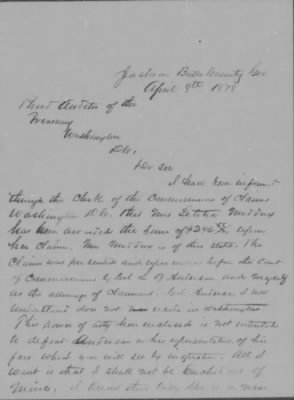 Jackson Butts County Geo
April 9th 1878
Third Auditor of the
Treasury
Washington
D.C.
Dr Sir
I have been informed
through the Clerk of the Commissioners of Claims
Washington D.C. that Mrs Letitia Maddux
has been awarded the sum of $246 upon
her claim. Mrs Maddux is of this state. The
claim was presented and represented before the Court
of Commissioners by Col L B Anderson and myself
as the attorneys of claimant. Col Anderson I now
understand does not reside in Washington
This power of atty herein enclosed is not intended
to defeat Anderson or his representative of his
fees which you will see by inspection. All I
want is that I shall not be cheated out of
mine. I know this lady she is a